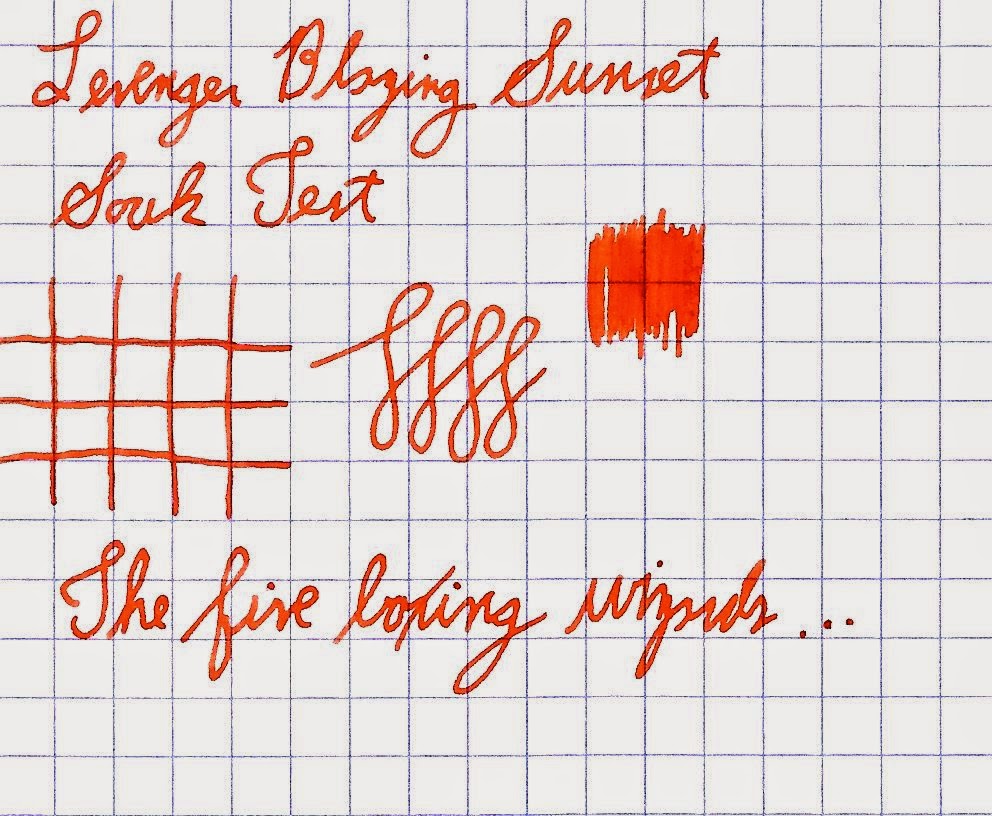 Levenger Blazing Sunset
Soak Test
The five boxing wizards...